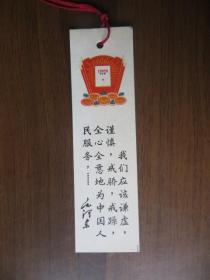 我们应该谦虚，
谨慎，戒骄，戒躁，
全心全意地为中国人
民服务，……
毛泽东